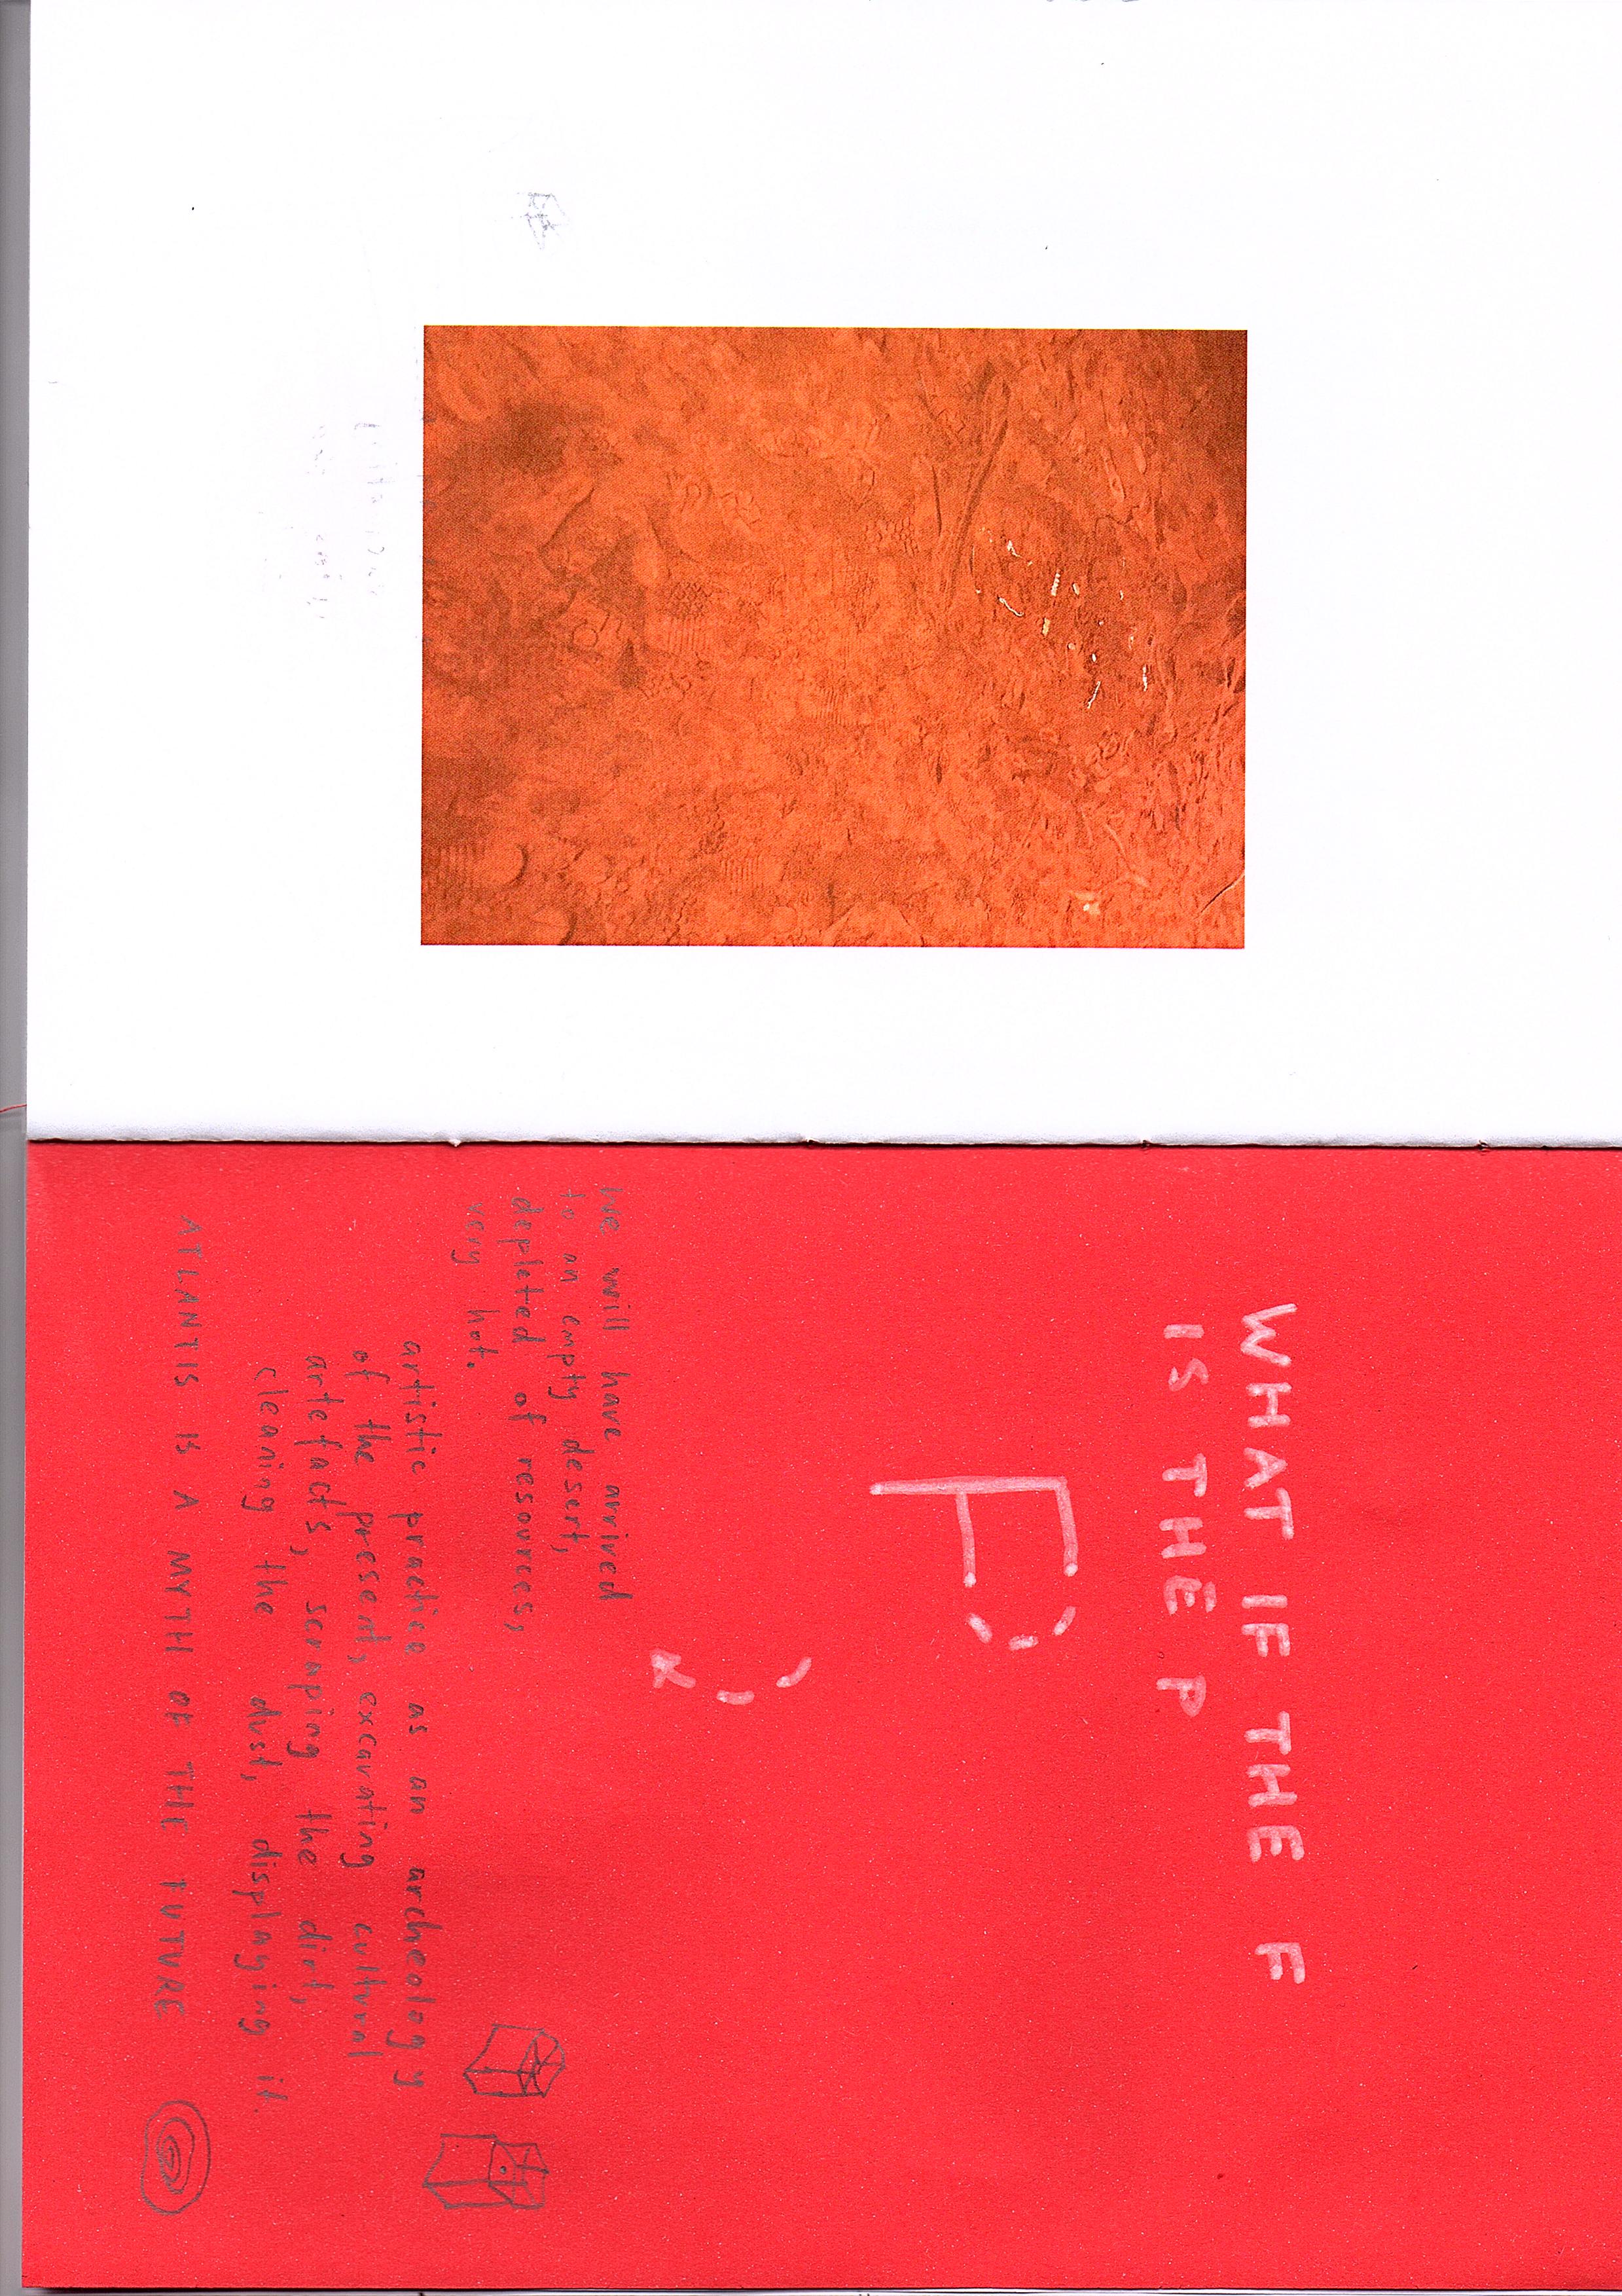 WHAT IF THE F
IS THE P
P
We will have arrived
to an empty desert,
depleted of resources,
very hot.
artistic practice as an archeology
of the present, excavating cultural
artefacts, scraping the dirt,
cleaning the dust, displaying it.
ATLANTIS IS A MYTH OF THE FUTURE